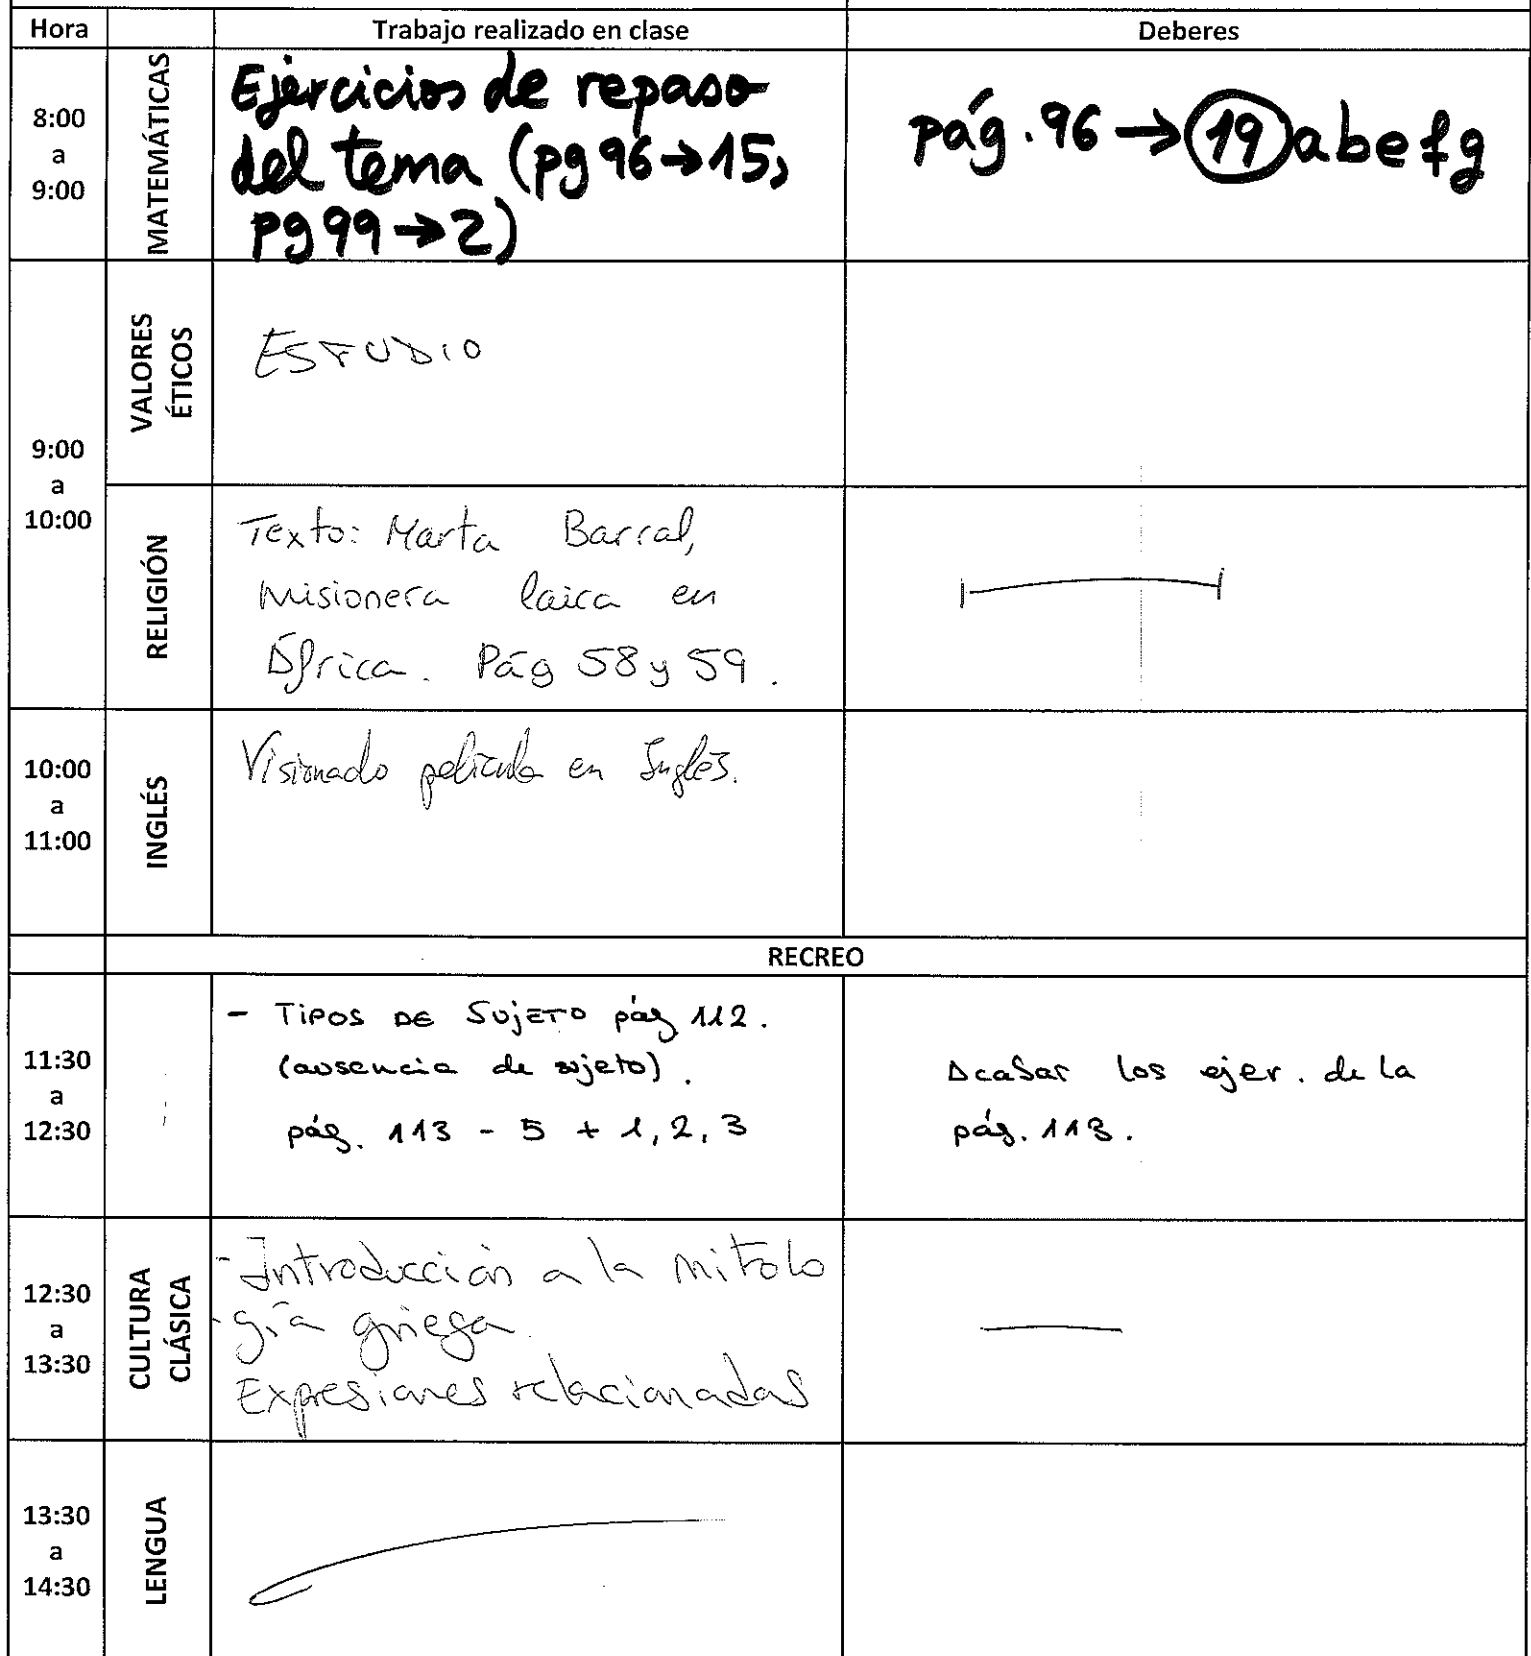 Hora Trabajo realizado en clase Deberes
8:00
a
9:00
MATEMÁTICAS
Ejercicios de repaso
del tema (pg 96→15,
pg 99→2)
pág. 96 → 19 a b e f g
9:00
a
10:00
VALORES
ÉTICOS
ESTUDIO
RELIGIÓN
Texto: Marta Barral,
misionera laica en
África. Pág 58 y 59.
10:00
a
11:00
INGLÉS
Visionado película en Inglés.
RECREO
11:30
a
12:30
- TIPOS DE SUJETO pág 112.
(ausencia de sujeto).
pág. 113 - 5 + 1, 2, 3
Acabar los ejer. de la
pág. 113.
12:30
a
13:30
CULTURA
CLÁSICA
- Introducción a la mitolo
-gía griega.
Expresiones relacionadas
13:30
a
14:30
LENGUA